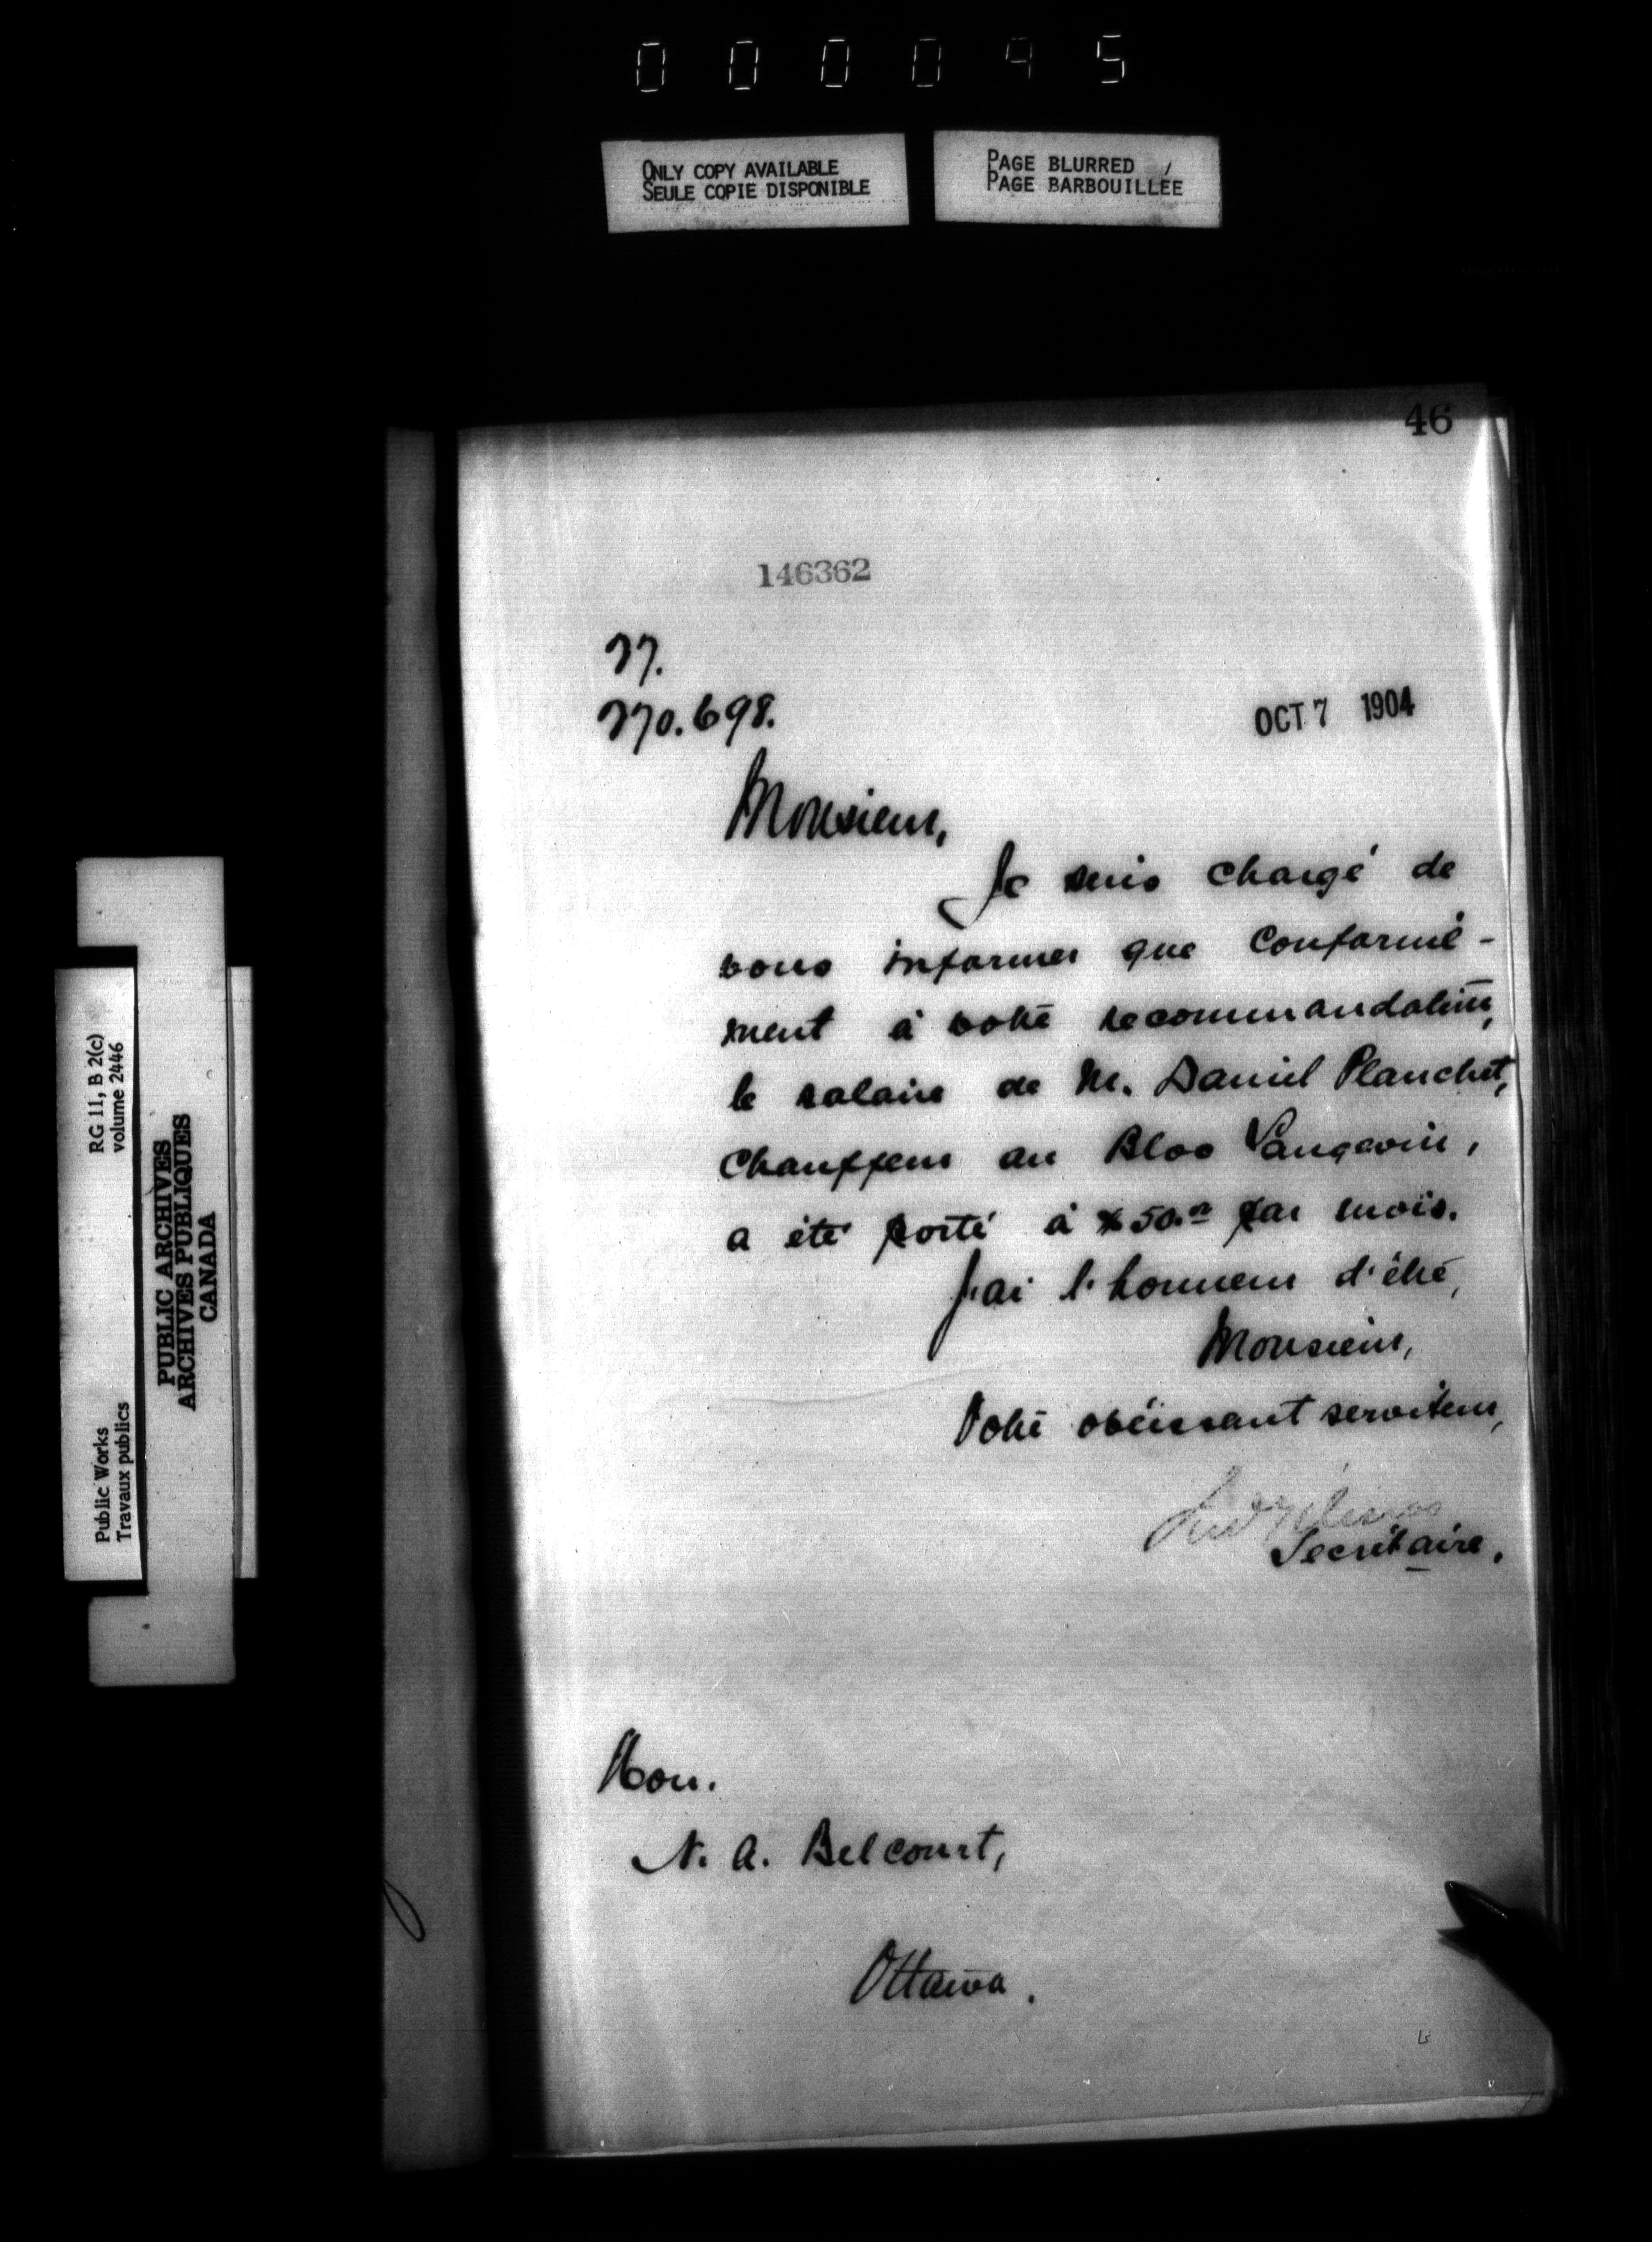 000045
ONLY COPY AVAILABLE
SEULE COPIE DISPONIBLE
PAGE BLURRED
PAGE BARBOUILLÉE
46
146362
77.
OCT 7 1904
Monsieur,
Je suis chargé de
vous informer que conformé-
ment à votre recommandation,
le salaire de M. Daniel Planchet,
Chauffeur au Bloc Langevin,
a été porté à $50.00 par mois.
J'ai l'honneur d'être,
Monsieur,
Votre obéissant serviteur,
Secrétaire.
Hon.
N. A. Belcourt,
Ottawa.
RG 11, B 2(c)
volume 2446
Public Works
Travaux publics
PUBLIC ARCHIVES
ARCHIVES PUBLIQUES
CANADA